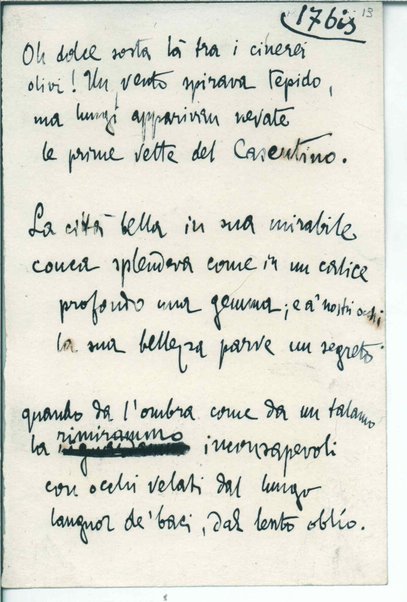 17 bis 13
Oh dolce sosta là tra i cinerei
olivi! Un vento spirava tepido,
ma lungi apparivan nevate
le prime vette del Casentino.
La città bella in sua mirabile
conca splendeva come in un calice
profondo una gemma; e a' nostri occhi
la sua bellezza parve un segreto
quando da l'ombra come da un talamo
la rimirammo inconsapevoli
con occhi velati dal lungo
languor de' baci, dal lento oblío.